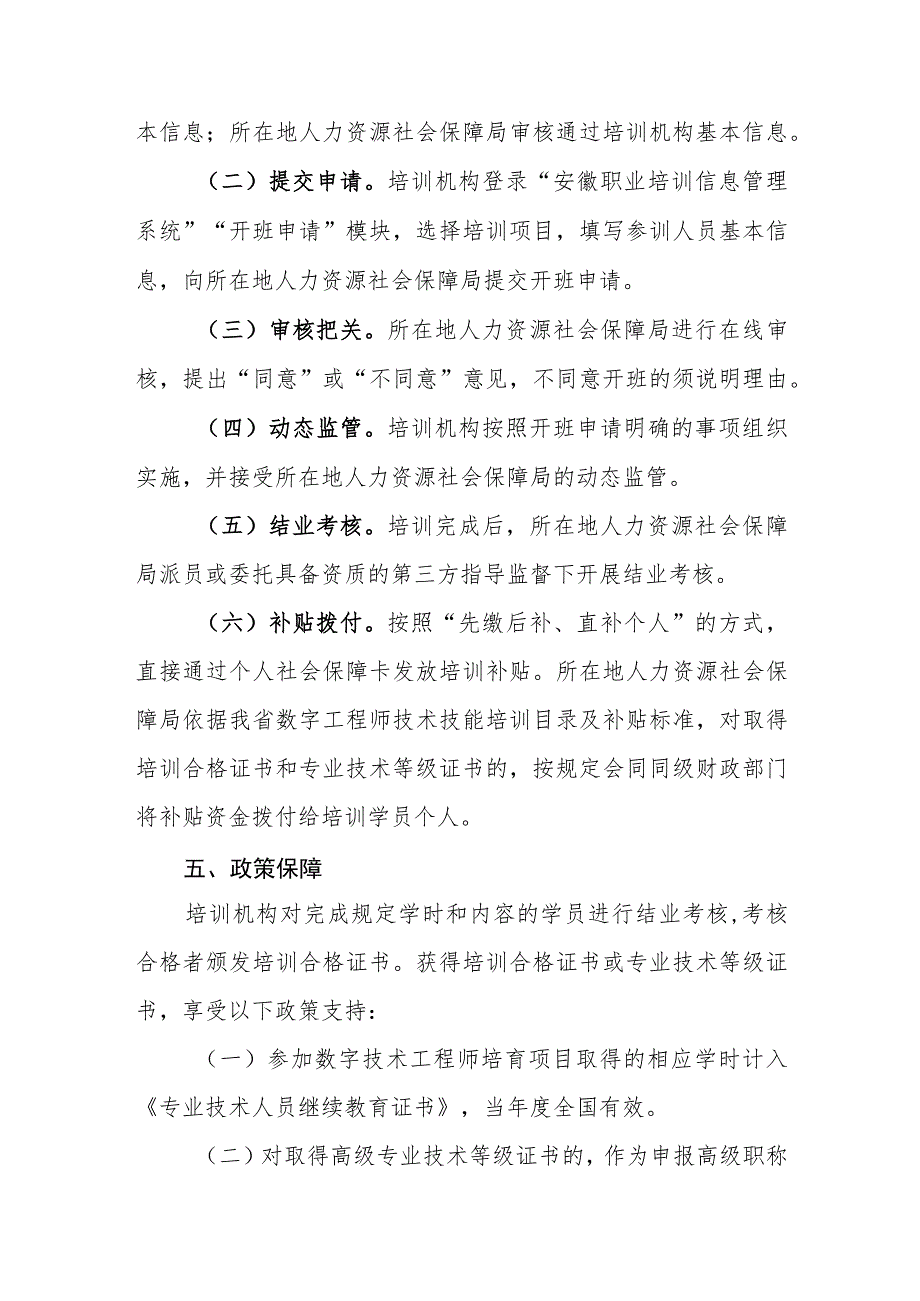 本信息；所在地人力资源社会保障局审核通过培训机构基本信息。
（二）提交申请。培训机构登录“安徽职业培训信息管理
系统”“开班申请”模块，选择培训项目，填写参训人员基本信
息，向所在地人力资源社会保障局提交开班申请。
（三）审核把关。所在地人力资源社会保障局进行在线审
核，提出“同意”或“不同意”意见，不同意开班的须说明理由。
（四）动态监管。培训机构按照开班申请明确的事项组织
实施，并接受所在地人力资源社会保障局的动态监管。
（五）结业考核。培训完成后，所在地人力资源社会保障
局派员或委托具备资质的第三方指导监督下开展结业考核。
（六）补贴拨付。按照“先缴后补、直补个人”的方式，
直接通过个人社会保障卡发放培训补贴。所在地人力资源社会保
障局依据我省数字工程师技术技能培训目录及补贴标准，对取得
培训合格证书和专业技术等级证书的，按规定会同同级财政部门
将补贴资金拨付给培训学员个人。
五、政策保障
培训机构对完成规定学时和内容的学员进行结业考核,考核
合格者颁发培训合格证书。获得培训合格证书或专业技术等级证
书，享受以下政策支持：
（一）参加数字技术工程师培育项目取得的相应学时计入
《专业技术人员继续教育证书》，当年度全国有效。
（二）对取得高级专业技术等级证书的，作为申报高级职称